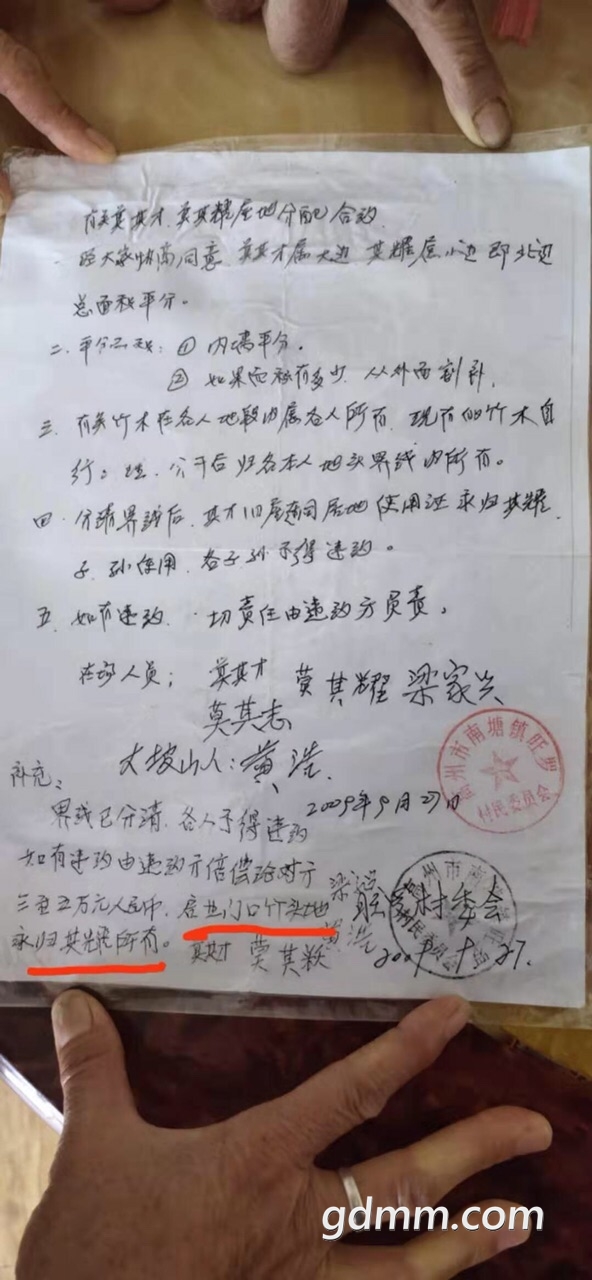 有关莫其才、莫其耀屋地分配合约
经大家协商同意,莫其才属大边 莫耀屋小边 即北边
总面积平分。
二、平分正线:① 内墙平分.
② 如果面积有多少,从外面割补,
三、有关竹木在各人地段内属各人所有,现有的竹木自
行 ,分开后归各本人地头界线内所有。
四、分清界线后,其才旧屋 同居地 使用证 永归其耀
子、孙使用,各子孙不得违约。
五、如有违约,一切责任由违约方负责,
在场人员; 莫其才 莫其耀 梁家兴
莫其志
大坡山人:黄浩.
2009年9月27日
州市南塘镇旺罗
村民委员会
补充:
界线已分清,各人不得违约
如有违约由违约方赔偿给对方
三至五万元人民币,屋 门口竹头地
永归其耀所有。
其财 莫其 黄浩
村委会
州市南
村民委员会
2009 27.
gdmm.com